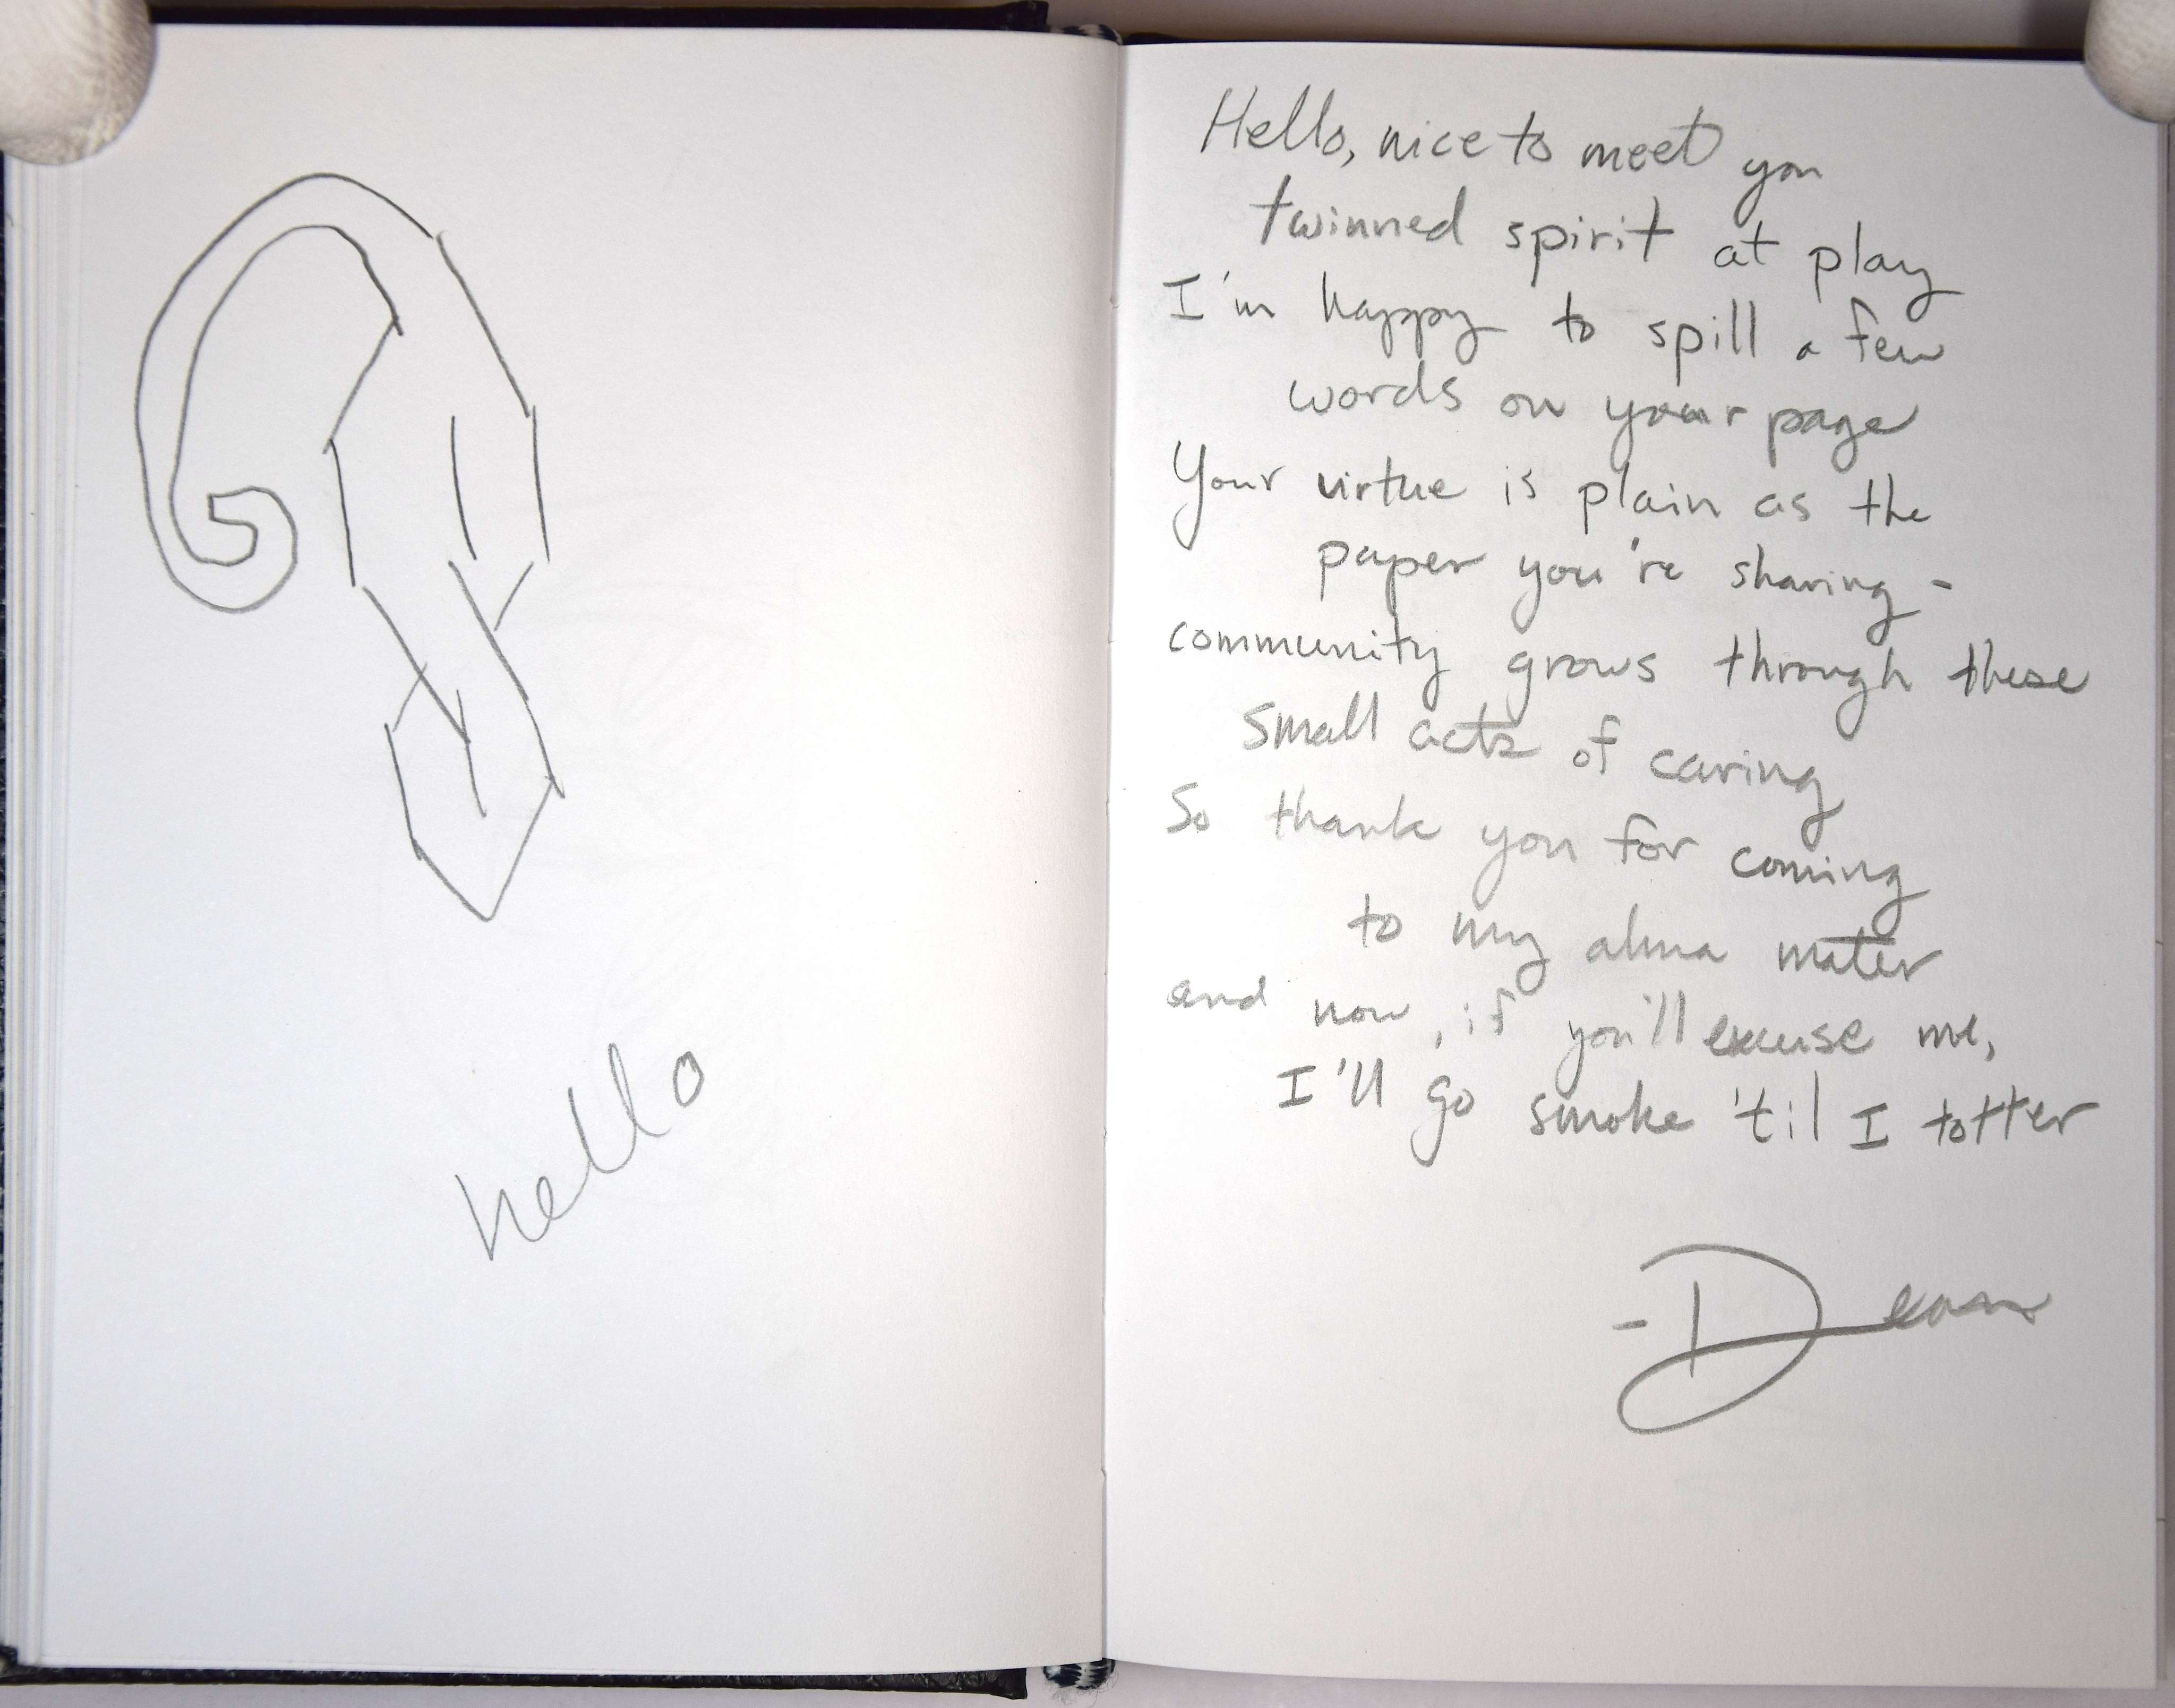 hello
Hello, nice to meet you
twinned spirit at play
I'm happy to spill a few
words on your page
Your virtue is plain as the
paper you're sharing -
community grows through these
small acts of caring
So thank you for coming
to my alma mater
and now, if you'll excuse me,
I'll go smoke 'til I totter
- Dean